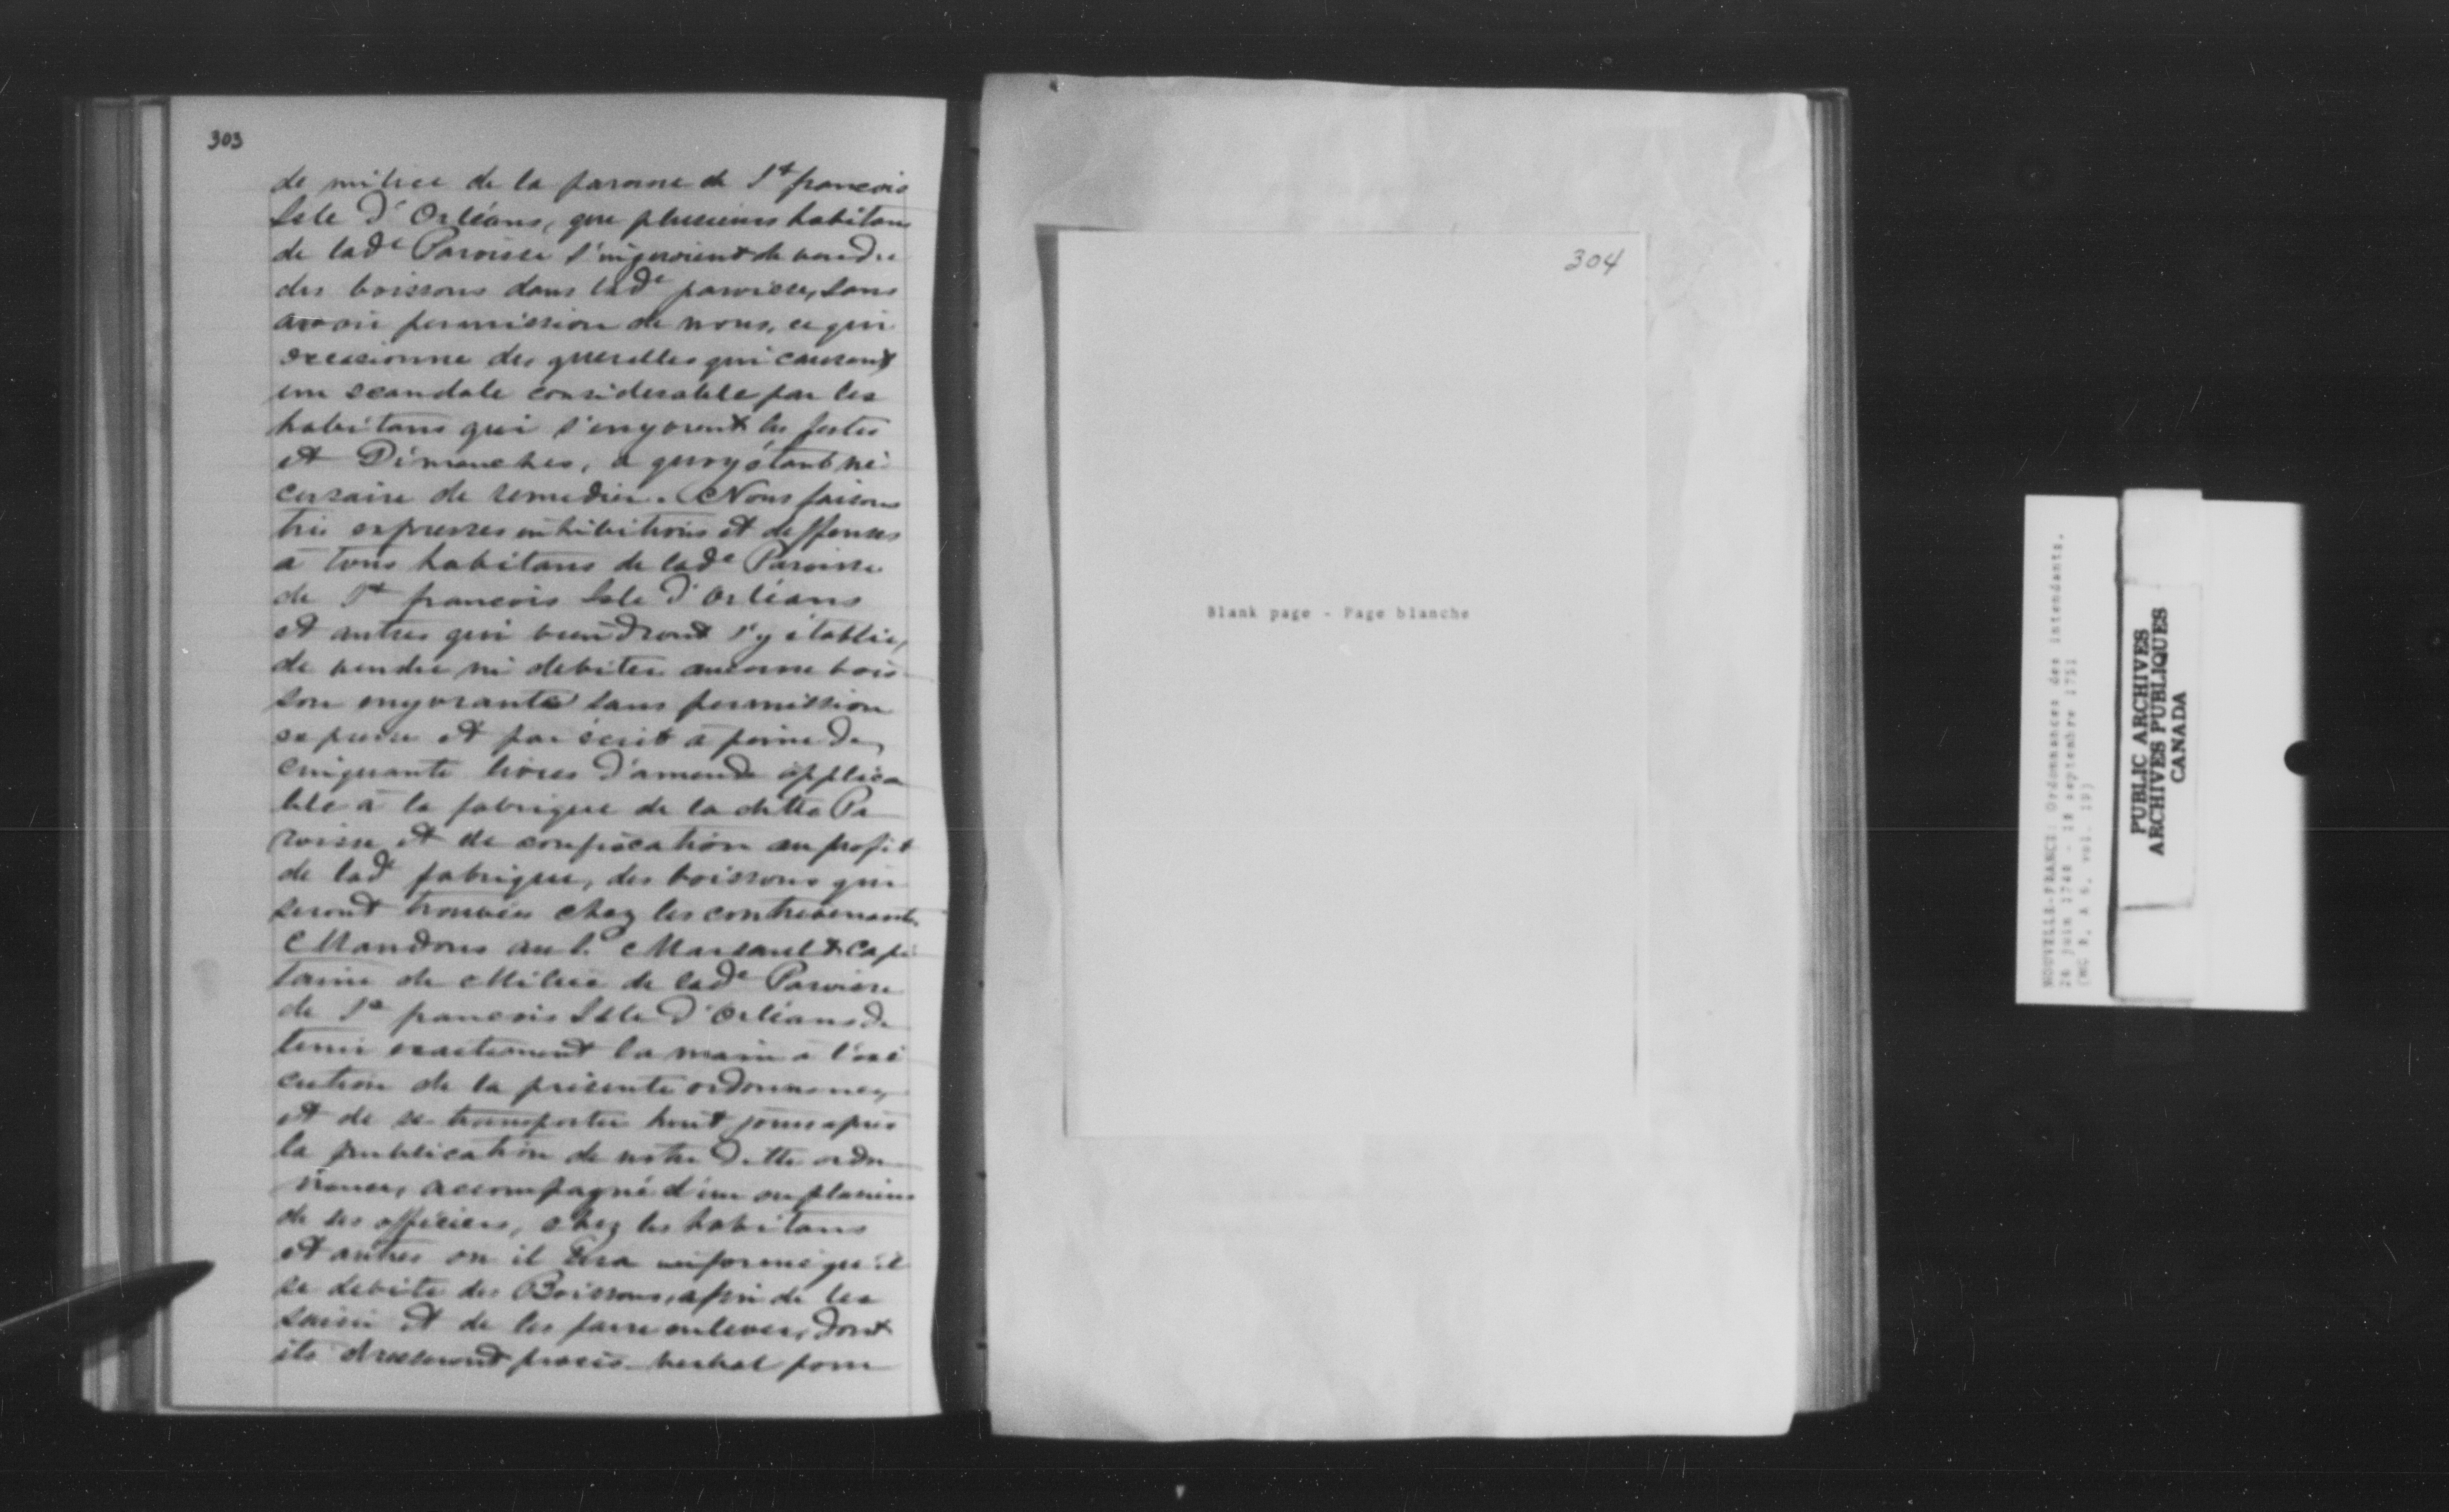 303
de milice de la paroisse de St francois
Isle d'Orléans, que plusieurs habitans
de lade Paroisse s'ingeroient de vendre
des boissons dans lade paroisse, sans
avoir permission de nous, ce qui
occasionne des querelles qui causent
un scandale considerable par les
habitans qui s'enyvrent les festes
et Dimanches, a quoy étant né
cessaire de remedier. Nous faisons
très expresses inhibitions et deffenses
à tous habitans de lade Paroisse
de St francois Isle d'Orléans
et autres qui viendront s'y établir,
de vendre ni debiter aucune bois
son enyvrante sans permission
expresse et par écrit a peine de
cinquante livres d'amende applica
ble à la fabrique de la ditte Pa
roisse et de confiscation au profit
de lad fabrique, des boissons qui
seront trouvées chez les contrevenants.
Mandons au S. Marsault Capi
taine de Milice de lade Paroisse
de St francois Isle d'Orléans de
tenir exactement la main a l'exé
cution de la présente ordonnance,
et de se transporter huit jours après
la publication de notre ditte ordon
nance, accompagné d'un ou plusieurs
de ses officiers, chez les habitans
et autres ou il sera informé qu'il
se debite des Boissons, afin de les
saisir et de les faire enlever, dont
ils dresseront procès verbal pour
304
Blank page - Page blanche
NOUVELLE-FRANCE: Ordonnances des intendants,
26 juin 1748 - 18 septembre 1751
(MG 8, A 6, vol. 19)
PUBLIC ARCHIVES
ARCHIVES PUBLIQUES
CANADA